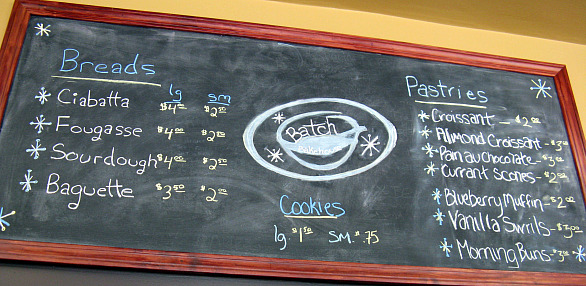 Breads
lg sm
* Ciabatta $4.00 $2.50
* Fougasse $4.00 $2.50
* Sourdough $4.00 $2.50
* Baguette $3.50 $2.00
Batch
Bakehouse
Cookies
lg. $1.50 sm. $.75
Pastries
* Croissant - $2.00
* Almond Croissant -
* Pain au Chocolate - $3.00
* Currant Scones - $2.00
* Blueberry Muffin - $2.00
* Vanilla Swirls - $3.00
* Morning Buns - $3.00